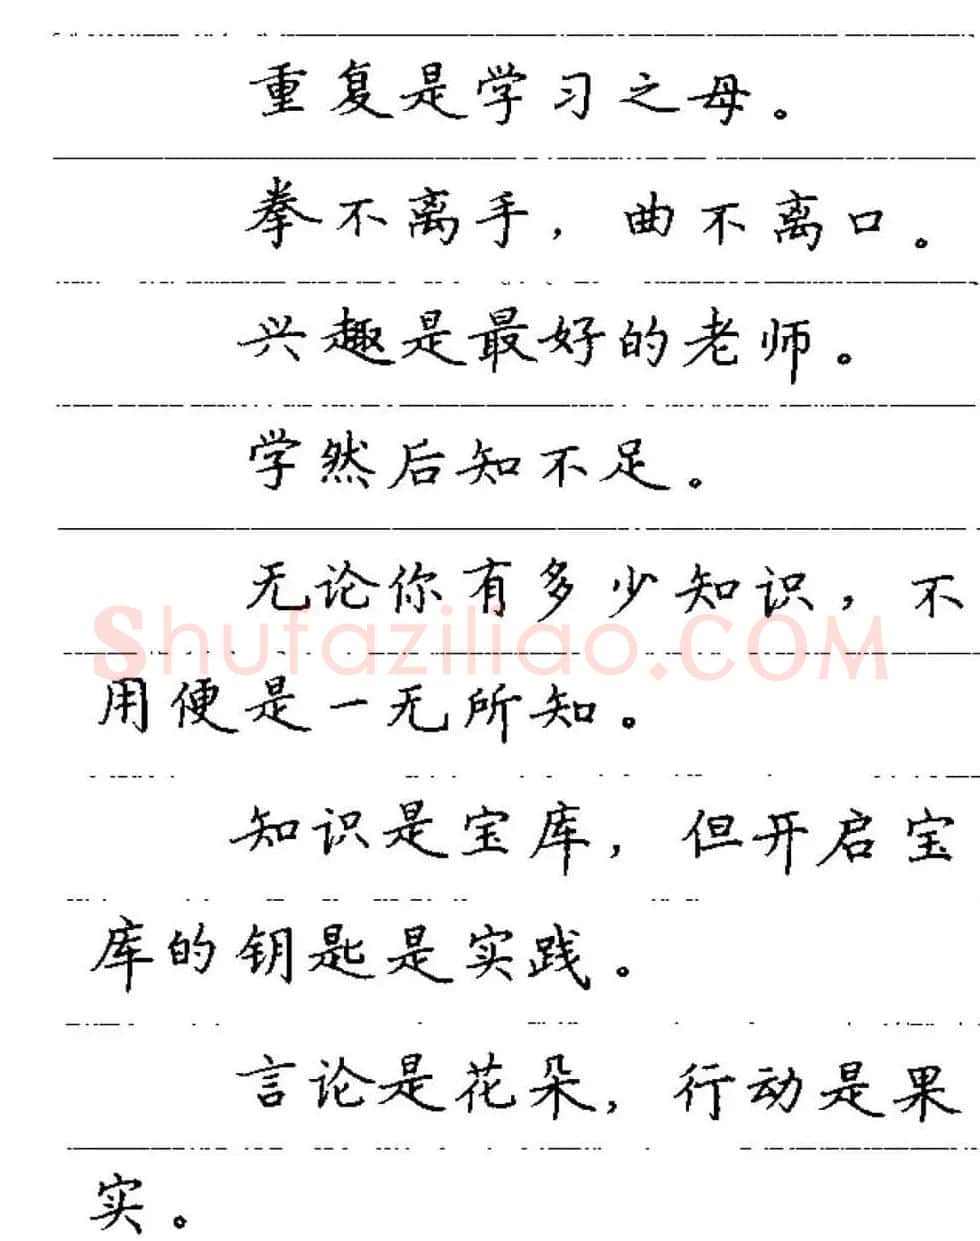 重复是学习之母。
拳不离手，曲不离口。
兴趣是最好的老师。
学然后知不足。
无论你有多少知识，不
shufaziliao.COM
用便是一无所知。
知识是宝库，但开启宝
库的钥匙是实践。
言论是花朵，行动是果
实。